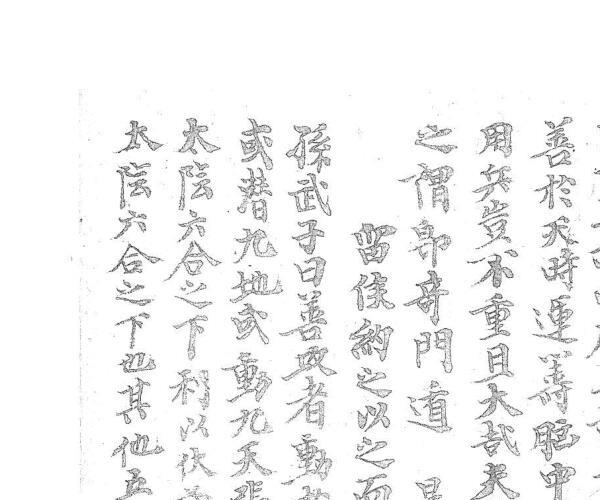 善於天時運籌中
用兵豈不重且大哉夫
之謂即奇門道
留侯納之以之而
孫武子曰善攻者動
或潜九地或動九天
太陰六合之下利以伏
太陰六合之下也其他五